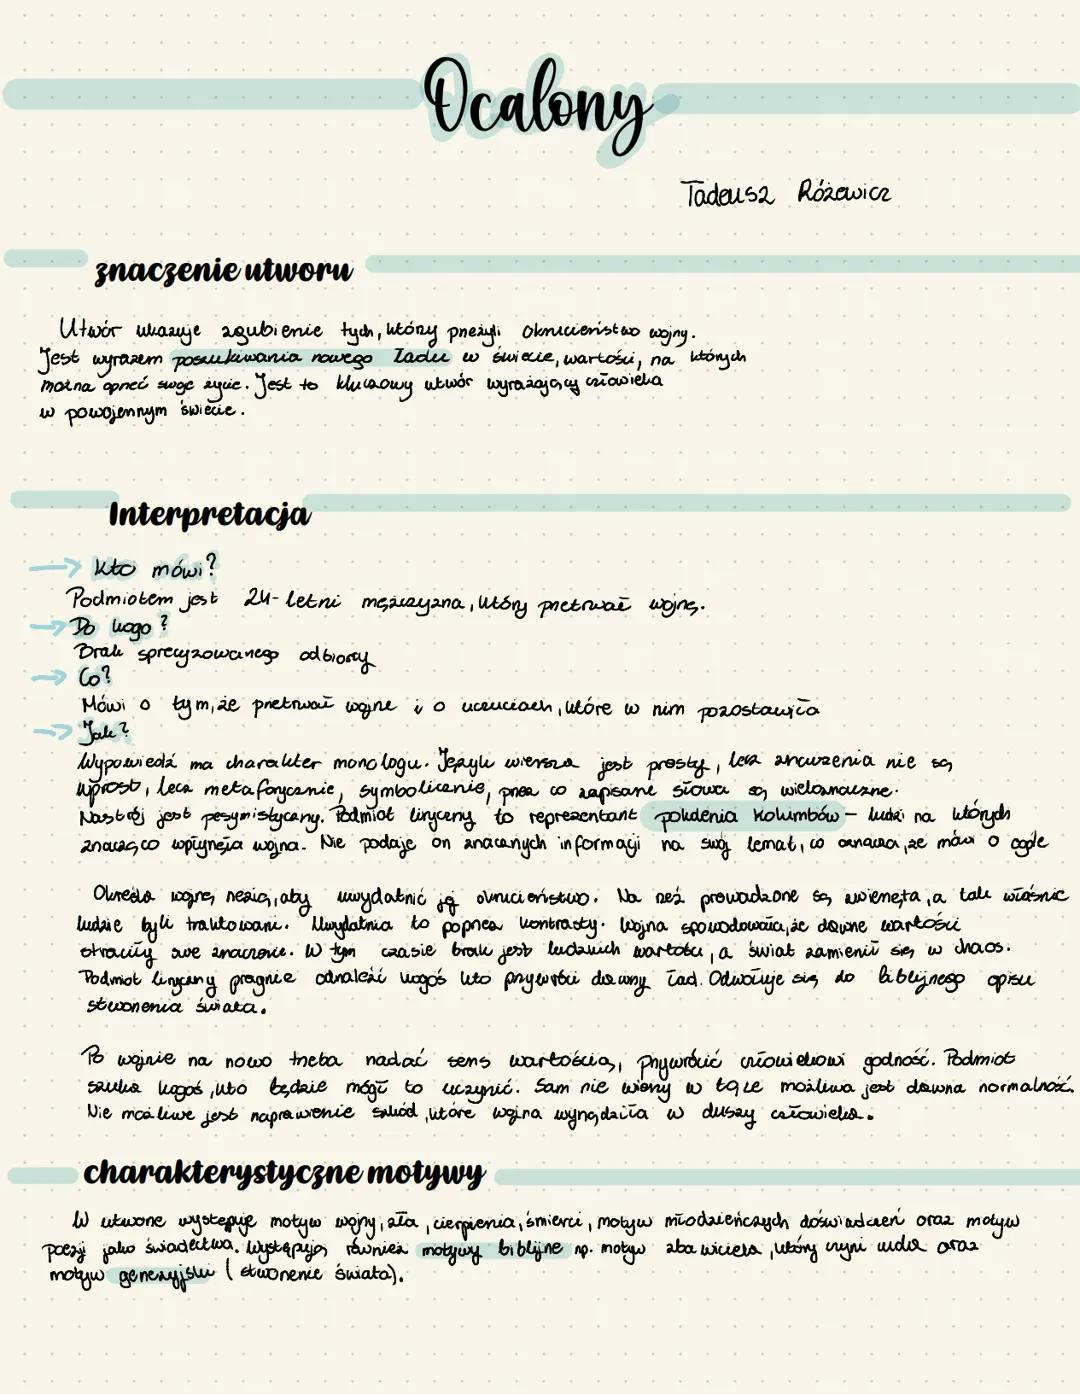 Ocalony
Tadeusz Różewicz
znaczenie utworu
Utwór ukazuje zgubienie tych, którzy przeżyli okrucieństwo wojny.
Jest wyrazem poszukiwania nowego ładu w świecie, wartości, na których
można oprzeć swoje życie. Jest to kluczowy utwór wyrażający człowieka
w powojennym świecie.
Interpretacja
→ Kto mówi?
Podmiotem jest 24-letni mężczyzna, który przetrwał wojnę.
→ Do kogo?
Brak sprecyzowanego odbiorcy
→ Co?
Mówi o tym, że przetrwał wojnę i o uczuciach, które w nim pozostawiła
→ Jak?
Wypowiedź ma charakter monologu. Język wiersza jest prosty, lecz znaczenia nie są
wprost, lecz metaforycznie, symbolicznie, przez co zapisane słowa są wieloznaczne.
Nastrój jest pesymistyczny. Podmiot liryczny to reprezentant pokolenia Kolumbów – ludzi na których
znacząco wpłynęła wojna. Nie podaje on znacznych informacji na swój temat, co oznacza, że mówi o ogóle
Określa wojnę rzezią, aby uwydatnić jej okrucieństwo. Na rzeź prowadzone są zwierzęta, a tak właśnie
ludzie byli traktowani. Uwydatnia to poprzez kontrasty. Wojna spowodowała, że dawne wartości
straciły swe znaczenie. W tym czasie brak jest ludzkich wartości, a świat zamienił się w chaos.
Podmiot liryczny pragnie odnaleźć kogoś kto przywróci dawny ład. Odwołuje się do biblijnego opisu
stworzenia świata.
Po wojnie na nowo trzeba nadać sens wartością, przywrócić człowiekowi godność. Podmiot
szuka kogoś, kto będzie mógł to uczynić. Sam nie wierzy w to, że możliwa jest dawna normalność.
Nie możliwe jest naprawienie szkód, które wojna wyrządziła w duszy człowieka.
charakterystyczne motywy
W utworze występuje motyw wojny, zła, cierpienia, śmierci, motyw młodzieńczych doświadczeń oraz motyw
poezji jako świadectwa. Występują również motywy biblijne np. motyw zbawiciela, który czyni cuda oraz
motyw genezyjski (stworzenie świata).